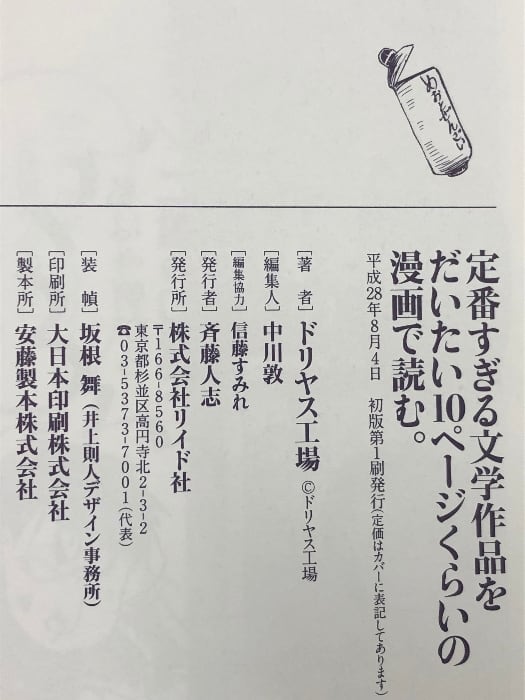 めおとぜんざい
定番すぎる文学作品を
だいたい10ページくらいの
漫画で読む。
平成28年8月4日　初版第1刷発行(定価はカバーに表記してあります)
[著　者]ドリヤス工場 ©ドリヤス工場
[編集人]中川敦
[編集協力]信藤すみれ
[発行者]斉藤人志
[発行所]株式会社リイド社
〒166-8560
東京都杉並区高円寺北2-3-2
☎03-5373-7001(代表)
[装　幀]坂根 舞(井上則人デザイン事務所)
[印刷所]大日本印刷株式会社
[製本所]安藤製本株式会社